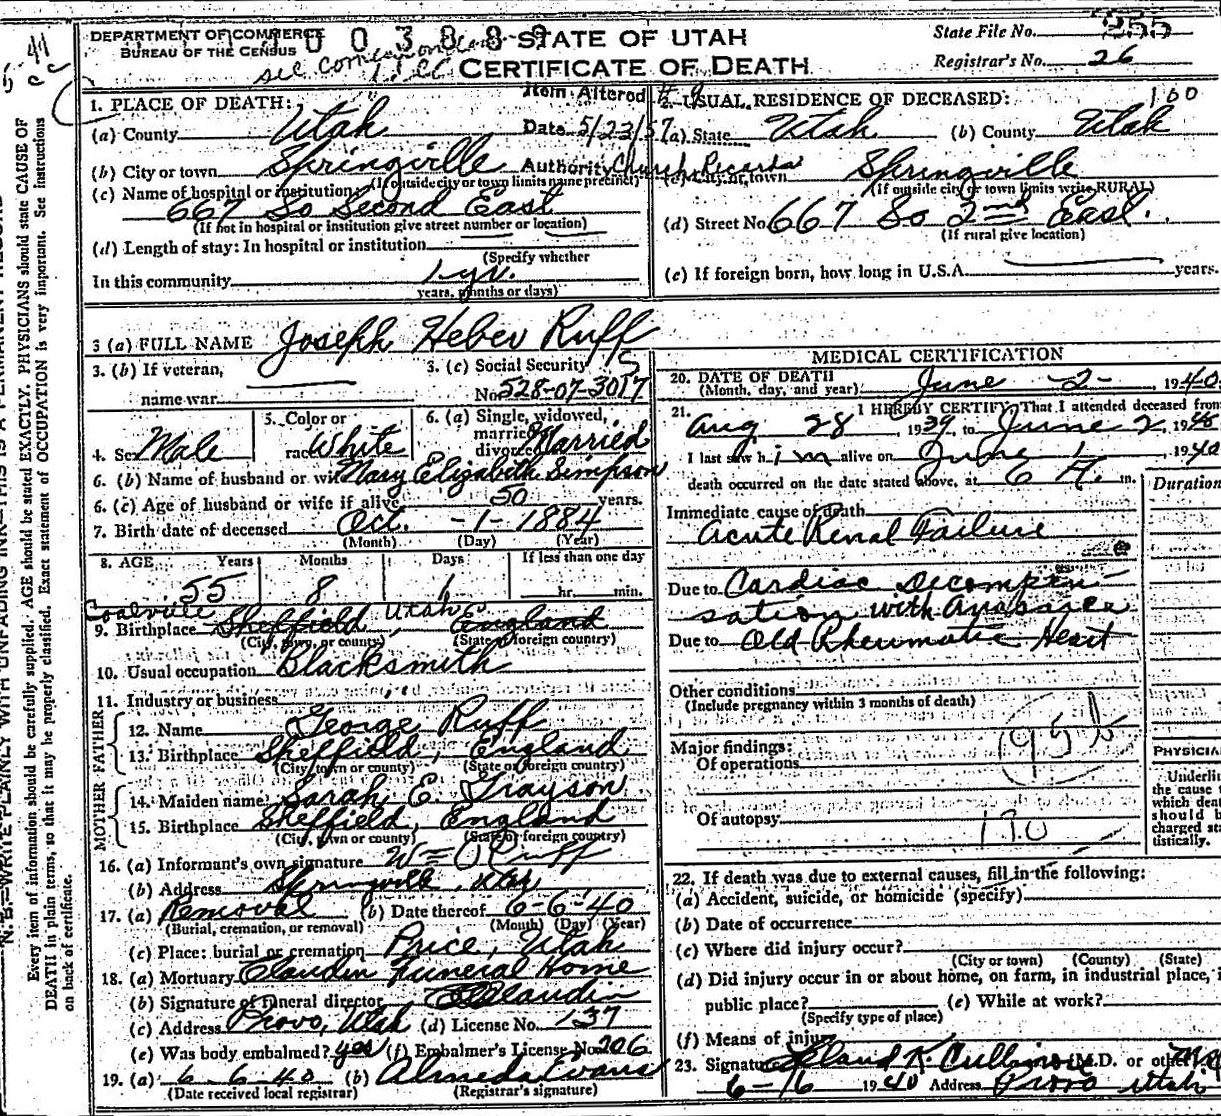 DEPARTMENT OF COMMERCE
BUREAU OF THE CENSUS
STATE OF UTAH
CERTIFICATE OF DEATH
State File No. 555
Registrar's No. 26
see correspondence
Item Altered # 9
Date 5/23/57
Authority Church Records
1. PLACE OF DEATH:
(a) County Utah
(b) City or town Springville
(If outside city or town limits name precinct)
(c) Name of hospital or institution:
667 So Second East
(If not in hospital or institution give street number or location)
(d) Length of stay: In hospital or institution
(Specify whether
In this community 1 yr.
years, months or days)
2. USUAL RESIDENCE OF DECEASED:
(a) State Utah (b) County Utah
(c) City or town Springville
(If outside city or town limits write RURAL)
(d) Street No. 667 So 2nd East.
(If rural give location)
(e) If foreign born, how long in U.S.A. years.
3 (a) FULL NAME Joseph Heber Ruff
3. (b) If veteran,
name war
3. (c) Social Security
No. 528-07-3017
4. Sex Male
5. Color or
race White
6. (a) Single, widowed,
married,
divorced Married
6. (b) Name of husband or wife Mary Elizabeth Simpson
6. (c) Age of husband or wife if alive 50 years.
7. Birth date of deceased Oct. -1- 1884
(Month) (Day) (Year)
8. AGE Years Months Days If less than one day
55 8 1 hr. min.
Coalville Utah
9. Birthplace Sheffield, England
(City, town, or county) (State or foreign country)
10. Usual occupation Blacksmith
11. Industry or business
FATHER
12. Name George Ruff
13. Birthplace Sheffield, England
(City, town or county) (State or foreign country)
MOTHER
14. Maiden name Sarah E. Grayson
15. Birthplace Sheffield, England
(City, town or county) (State or foreign country)
16. (a) Informant's own signature Ruff
(b) Address Springville, Utah
17. (a) Removal (b) Date thereof 6-6-40
(Burial, cremation, or removal) (Month) (Day) (Year)
(c) Place: burial or cremation Price, Utah
18. (a) Mortuary Claudin Funeral Home
(b) Signature of funeral director Claudin
(c) Address Provo, Utah (d) License No. 137
(e) Was body embalmed? yes (f) Embalmer's License No. 206
19. (a) 6-6-40 (b) Almeda Evans
(Date received local registrar) (Registrar's signature)
MEDICAL CERTIFICATION
20. DATE OF DEATH
(Month, day, and year) June -2- , 1940
21. I HEREBY CERTIFY, That I attended deceased from
Aug 28 1939, to June 2, 1940
I last saw him alive on June 1, 1940
death occurred on the date stated above, at 6 A. m.
Duration
Immediate cause of death
Acute Renal Failure
Due to Cardiac Decompen-
sation with Anasarca
Due to Old Rheumatic Heart
Other conditions
(Include pregnancy within 3 months of death)
Major findings:
Of operations
Of autopsy
PHYSICIAN
Underline
the cause
which death
should be
charged sta-
tistically.
22. If death was due to external causes, fill in the following:
(a) Accident, suicide, or homicide (specify)
(b) Date of occurrence
(c) Where did injury occur?
(City or town) (County) (State)
(d) Did injury occur in or about home, on farm, in industrial place, in
public place? (e) While at work?
(Specify type of place)
(f) Means of injury
23. Signature Leland K. Cullimore (M.D. or other)
6-16 1940 Address Provo Utah
N. B.—WRITE PLAINLY WITH UNFADING INK—THIS IS A PERMANENT RECORD
Every item of information should be carefully supplied. AGE should be stated EXACTLY. PHYSICIANS should state CAUSE OF
DEATH in plain terms, so that it may be properly classified. Exact statement of OCCUPATION is very important. See instructions
on back of certificate.